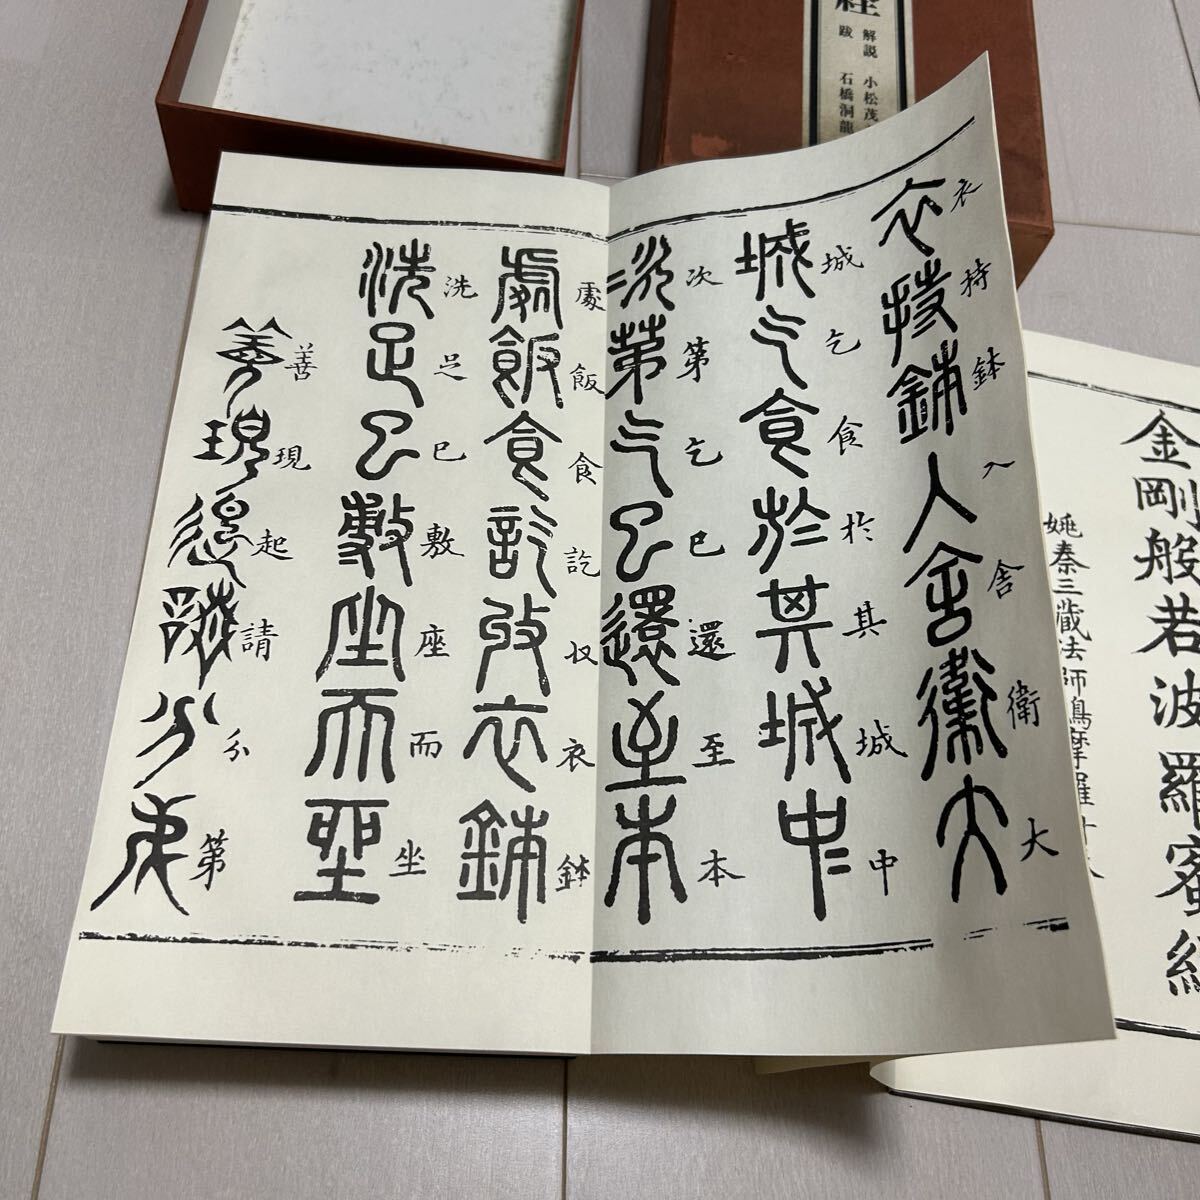 解説 小松茂
跋 石橋洞龍
金剛般若波羅蜜經
姚秦三藏法師鳩摩羅什
衣持鉢入舍衛大
衣持鉢入舍衛大
城乞食於其城中
城乞食於其城中
次第乞已還至本
次第乞已還至本
處飯食訖収衣鉢
處飯食訖収衣鉢
洗足已敷座而坐
洗足已敷座而坐
善現起請分第
善現起請分第